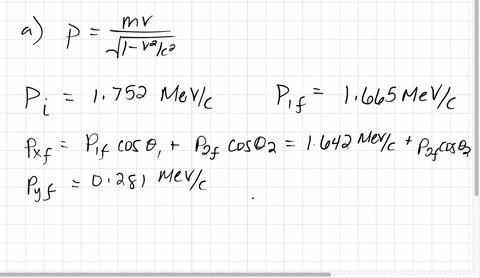 a) p = mv / √(1 - v²/c²)
Pi = 1.752 MeV/c P1f = 1.665 MeV/c
Pxf = P1f cosθ1 + P2f cosθ2 = 1.642 MeV/c + P2f cosθ2
Pyf = 0.281 MeV/c